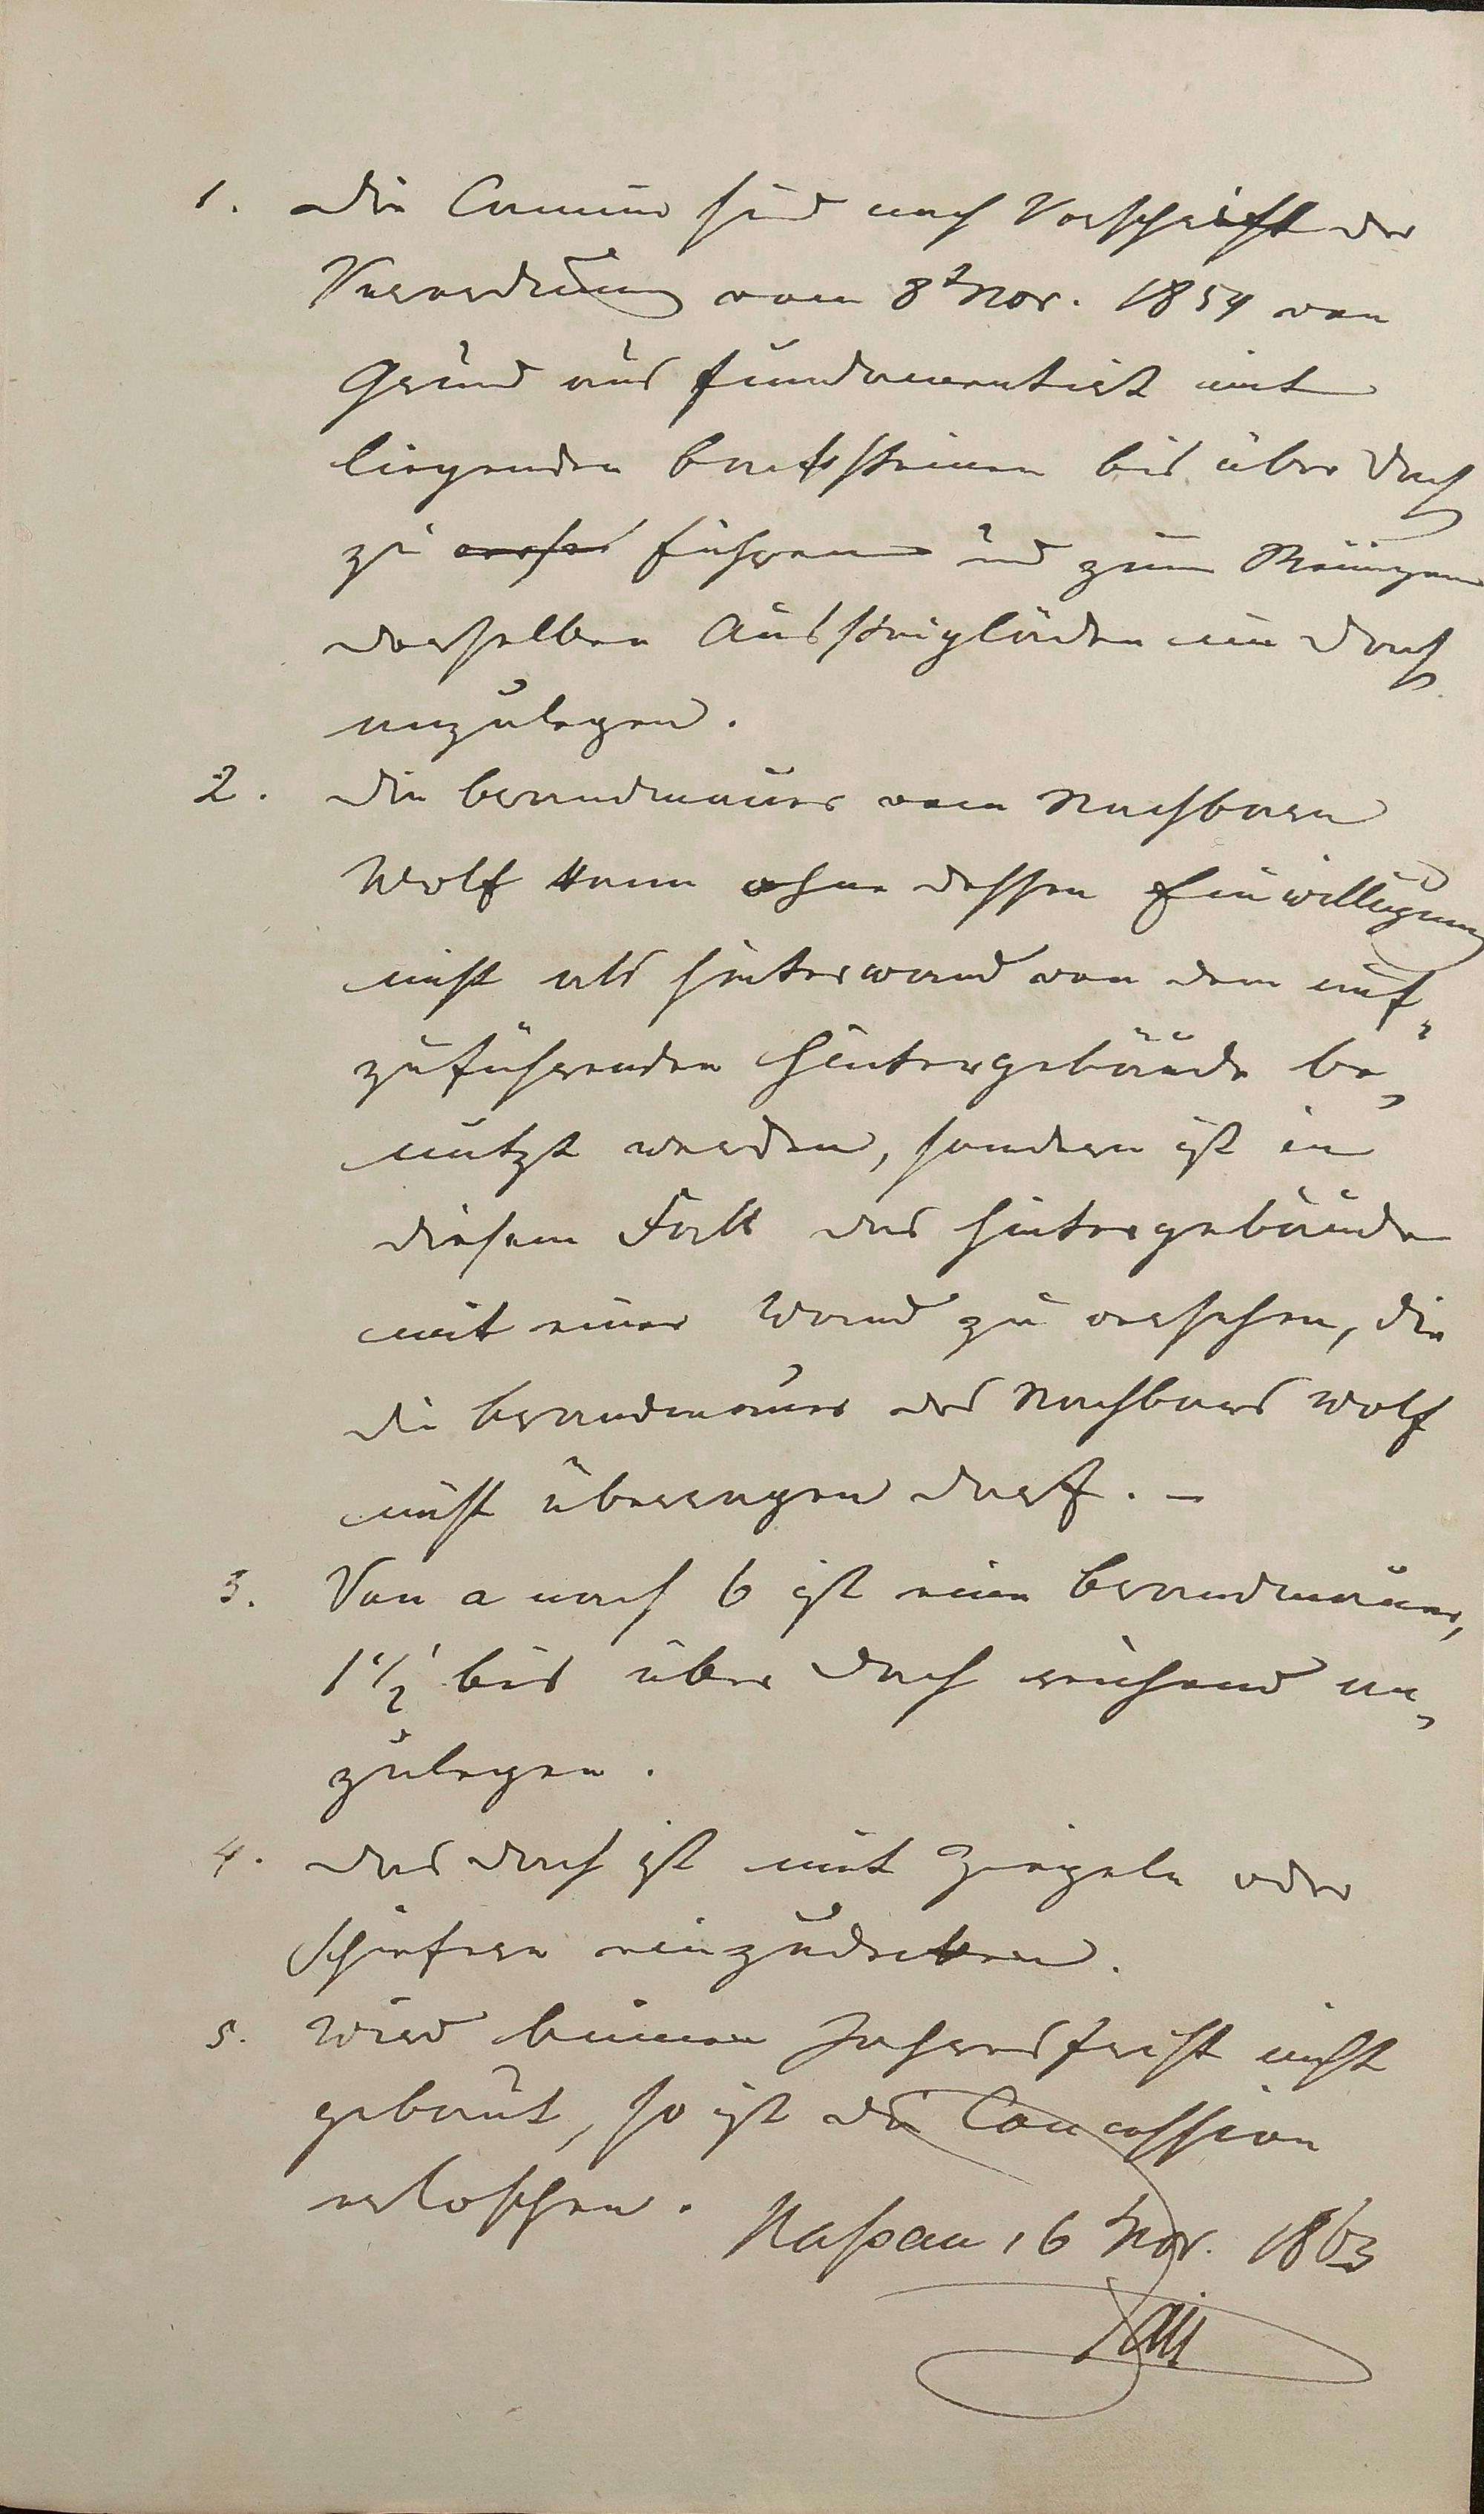 1. Die Camine sind nach Vorschrift der
Verordnung vom 8t Nov. 1854 von
Grund aus fundamentirt mit
liegenden Backsteinen bis über Dach
zu führen und zum Reinigen
derselben Aussteigläden im Dach
anzulegen.
2. Die Brandmauer vom Nachbarn
Wolf kann ohne dessen Einwilligung
nicht als Hinterwand von dem auf-
zuführenden Hintergebäude be-
nutzt werden, sondern ist in
diesem Fall das Hintergebäude
mit einer Wand zu versehen, die
die Brandmauer des Nachbars Wolf
nicht überragen darf. –
3. Von a nach b ist eine Brandmauer,
1 1/2' bis über Dach reichend an-
zulegen.
4. Das Dach ist mit Ziegeln oder
Schiefern einzudecken.
5. Wird binnen Jahresfrist nicht
gebaut, so ist die Concession
erloschen. Naßau 16 Nov. 1863